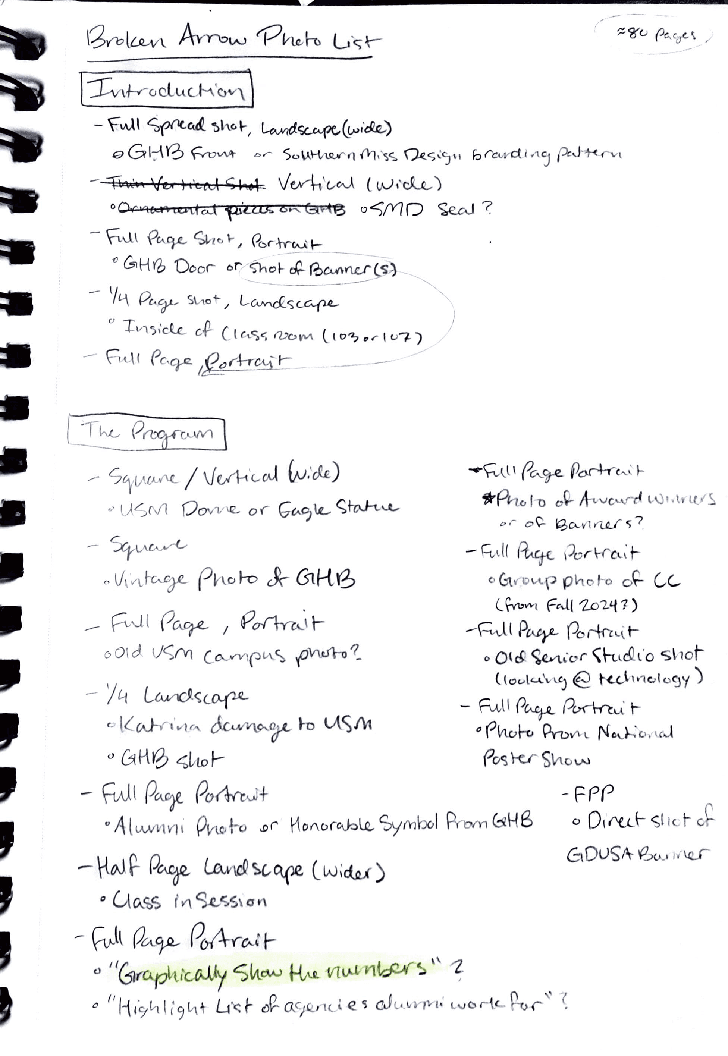 Broken Arrow Photo List
≈80 pages
Introduction
- Full Spread shot, Landscape (wide)
o GHB Front or Southern Miss Design branding pattern
- Thin Vertical Shot Vertical (wide)
o Ornamental pieces on GHB o SMD Seal?
- Full Page Shot, Portrait
o GHB Door or Shot of Banner(s)
- 1/4 Page shot, Landscape
o Inside of Classroom (103 or 107)
- Full Page, Portrait
The Program
- Square / Vertical (wide)
o USM Dome or Eagle Statue
- Square
o Vintage Photo of GHB
- Full Page, Portrait
o Old USM campus photo?
- 1/4 Landscape
o Katrina damage to USM
o GHB shot
- Full Page Portrait
o Alumni Photo or Honorable Symbol from GHB
- Half Page Landscape (wider)
o Class in Session
- Full Page Portrait
o "Graphically Show the numbers" ?
o "Highlight List of agencies alumni work for" ?
- Full Page Portrait
* Photo of Award winners
or of Banners?
- Full Page Portrait
o Group photo of CC
(from Fall 2024?)
- Full Page Portrait
o Old Senior Studio shot
(looking @ technology)
- Full Page Portrait
o Photo From National
Poster Show
- FPP
o Direct shot of
GDUSA Banner